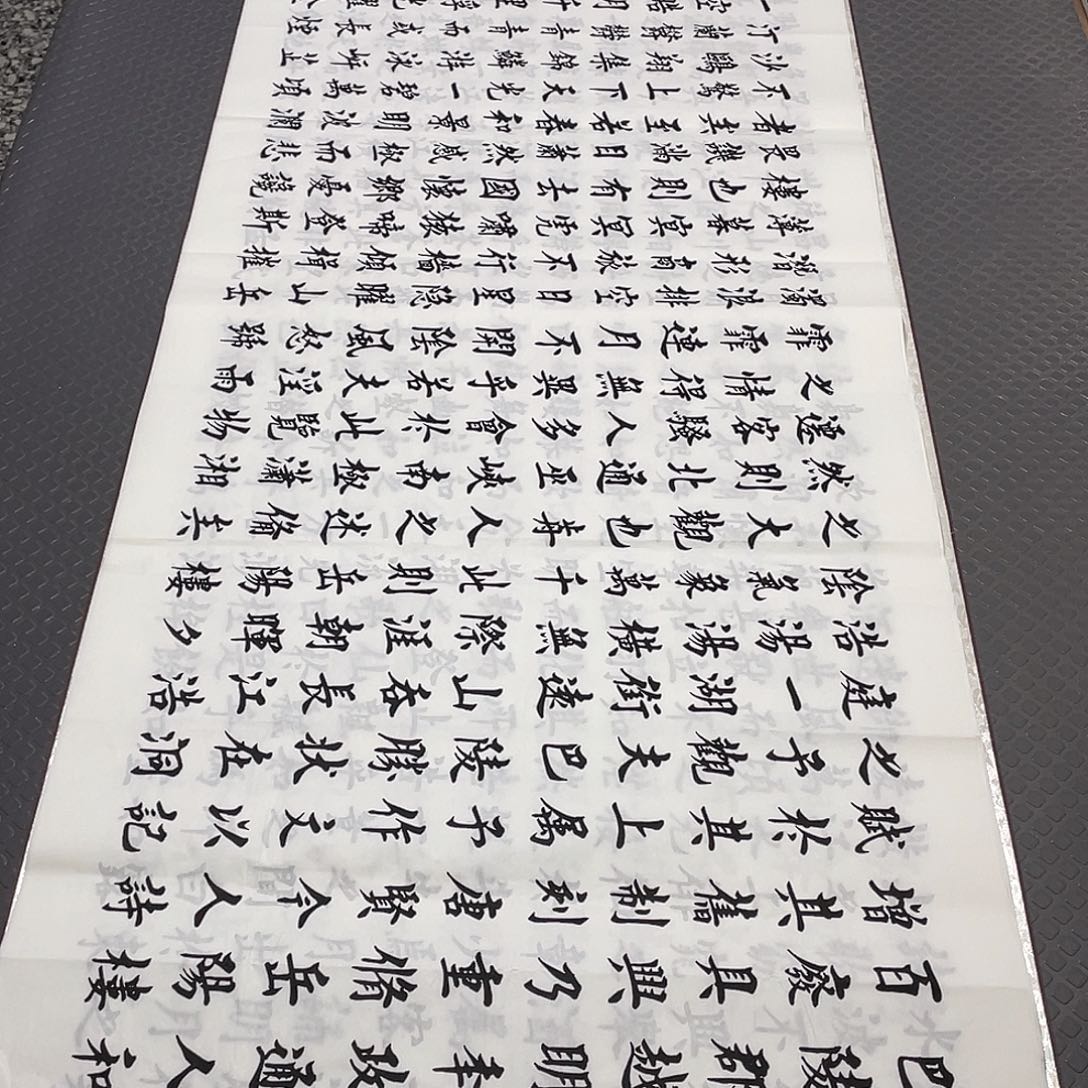 巴陵郡越明年政通人和
百廢具興乃重脩岳陽樓
增其舊制刻唐賢今人詩
賦於其上属予作文以記
之予觀夫巴陵勝狀在洞
庭一湖銜遠山吞長江浩
浩湯湯橫無際涯朝暉夕
陰氣象萬千此則岳陽樓
之大觀也前人之述備矣
然則北通巫峽南極瀟湘
遷客騷人多會於此覽物
之情得無異乎若夫淫雨
霏霏連月不開陰風怒號
濁浪排空日星隱曜山岳
潛形商旅不行檣傾楫摧
薄暮冥冥虎嘯猿啼登斯
樓也則有去國懷鄉憂讒
畏譏滿目蕭然感極而悲
者矣至若春和景明波瀾
不驚上下天光一碧萬頃
沙鷗翔集錦鱗游泳岸芷
汀蘭鬱鬱青青而或長煙
一空皓月千里浮光躍